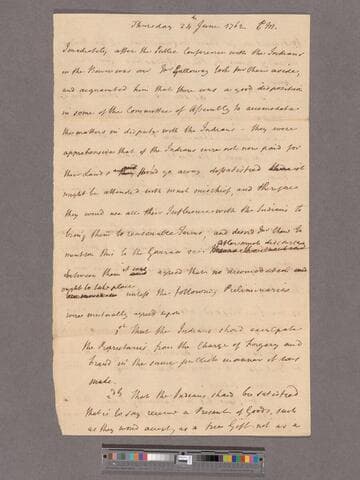 Thursday 24th June 1762 P.M.
Immediately after the Public Conference with the Indians
in the Bower was over Mr Galloway took Mr Peters aside,
and acquainted him that there was a good disposition
in some of the Committee of Assembly to accomodate
the matters in dispute with the Indians - they were
apprehensive that if the Indians were not now paid for
their Lands and should go away dissatisfied it
might be attended with much mischief, and therefore
they would use all their Influence with the Indians to
bring them to reasonable Terms, and desired Mr Peters to
mention this to the Governor
after much discourse
between them it was agreed that no accomodation
ought to take place
unless the following Preliminaries
were mutually agreed upon
1st That the Indians should exculpate
the Proprietaries from the Charge of Forgery and
fraud in the same publick manner it was
made.
2dly That the Indians should be satisfied
that is to say receive a Present of Goods, such
as they would accept, as a free Gift not as a